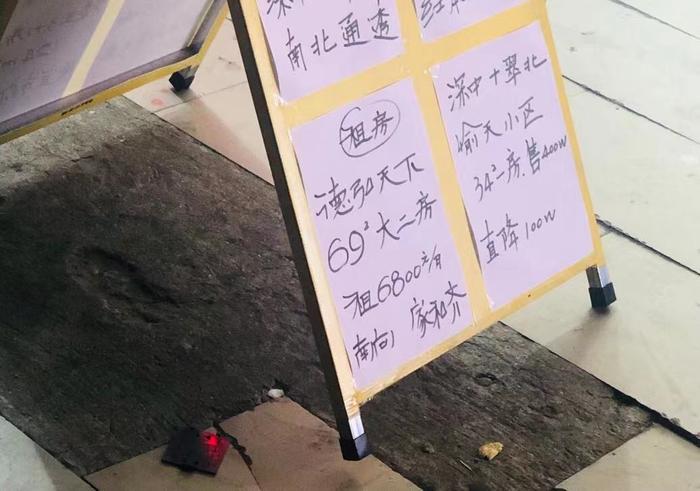 南北通透
租房
德弘天下
69²大二房
租6800元/月
南向 家私齐
深中+翠北
愉天小区
34²一房.售400W
直降100W